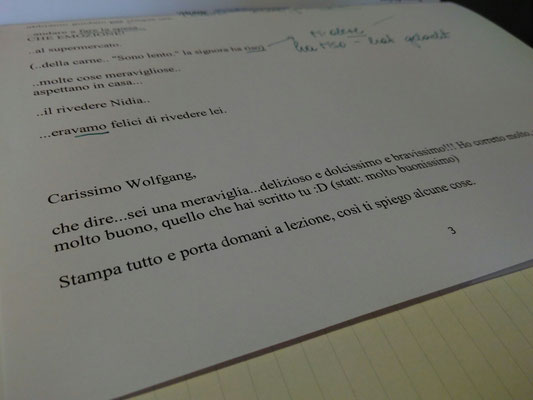 CHE EMOZIONE!
..al supermercato.
(..della carne.. "Sono lento." la signora ha riso
ridere
ha riso - hat gelacht
..molte cose meravigliose..
aspettano in casa...
..il rivedere Nidia..
...eravamo felici di rivedere lei.
Carissimo Wolfgang,
che dire...sei una meraviglia...delizioso e dolcissimo e bravissimo!!! Ho corretto molto,
molto buono, quello che hai scritto tu :D (statt: molto buonissimo)
Stampa tutto e porta domani a lezione, così ti spiego alcune cose.
3